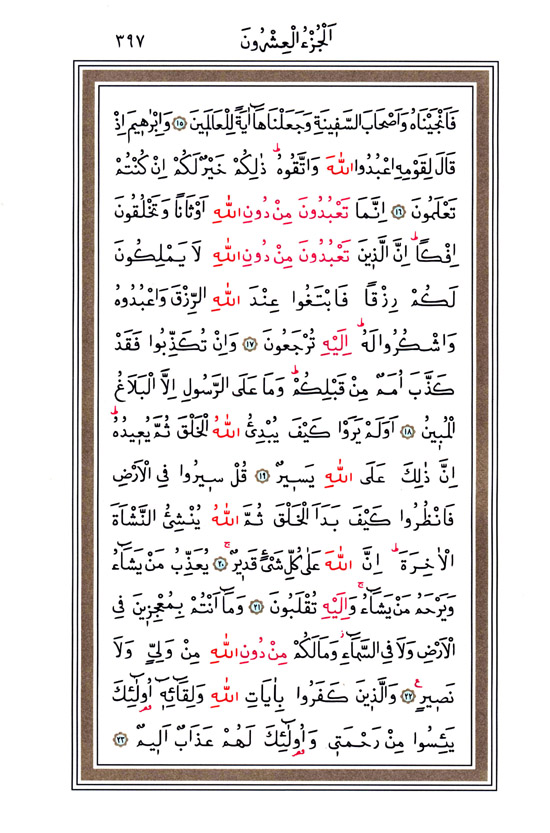 اَلْجُزْءُ الْعِشْرُونَ ٣٩٧
فَاَنْجَيْنَاهُ وَاَصْحَابَ السَّفٖينَةِ وَجَعَلْنَاهَٓا اٰيَةً لِلْعَالَمٖينَ ﴿١٥﴾ وَاِبْرٰهٖيمَ اِذْ
قَالَ لِقَوْمِهِ اعْبُدُوا اللّٰهَ وَاتَّقُوهُؕ ذٰلِكُمْ خَيْرٌ لَكُمْ اِنْ كُنْتُمْ
تَعْلَمُونَ ﴿١٦﴾ اِنَّمَا تَعْبُدُونَ مِنْ دُونِ اللّٰهِ اَوْثَانًا وَتَخْلُقُونَ
اِفْكًاؕ اِنَّ الَّذٖينَ تَعْبُدُونَ مِنْ دُونِ اللّٰهِ لَا يَمْلِكُونَ
لَكُمْ رِزْقًا فَابْتَغُوا عِنْدَ اللّٰهِ الرِّزْقَ وَاعْبُدُوهُ
وَاشْكُرُوا لَهُؕ اِلَيْهِ تُرْجَعُونَ ﴿١٧﴾ وَاِنْ تُكَذِّبُوا فَقَدْ
كَذَّبَ اُمَمٌ مِنْ قَبْلِكُمْؕ وَمَا عَلَى الرَّسُولِ اِلَّا الْبَلَاغُ
الْمُبٖينُ ﴿١٨﴾ اَوَلَمْ يَرَوْا كَيْفَ يُبْدِئُ اللّٰهُ الْخَلْقَ ثُمَّ يُعٖيدُهُؕ
اِنَّ ذٰلِكَ عَلَى اللّٰهِ يَسٖيرٌ ﴿١٩﴾ قُلْ سٖيرُوا فِى الْاَرْضِ
فَانْظُرُوا كَيْفَ بَدَاَ الْخَلْقَ ثُمَّ اللّٰهُ يُنْشِئُ النَّشْاَةَ
الْاٰخِرَةَؕ اِنَّ اللّٰهَ عَلٰى كُلِّ شَىْءٍ قَدٖيرٌۚ ﴿٢٠﴾ يُعَذِّبُ مَنْ يَشَٓاءُ
وَيَرْحَمُ مَنْ يَشَٓاءُۚ وَاِلَيْهِ تُقْلَبُونَ ﴿٢١﴾ وَمَٓا اَنْتُمْ بِمُعْجِزٖينَ فِى
الْاَرْضِ وَلَا فِى السَّمَٓاءِؗ وَمَا لَكُمْ مِنْ دُونِ اللّٰهِ مِنْ وَلِىٍّ وَلَا
نَصٖيرٍࣖ ﴿٢٢﴾ وَالَّذٖينَ كَفَرُوا بِاٰيَاتِ اللّٰهِ وَلِقَٓائِهٖٓ اُو۬لٰٓئِكَ
يَئِسُوا مِنْ رَحْمَتٖى وَاُو۬لٰٓئِكَ لَهُمْ عَذَابٌ اَلٖيمٌ ﴿٢٣﴾